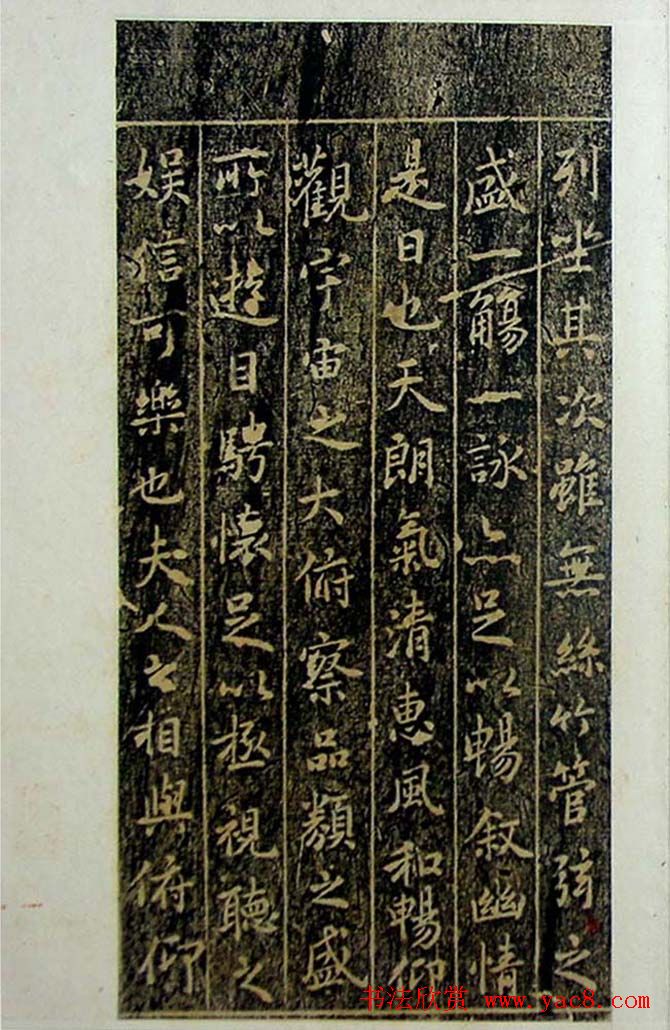 列坐其次雖無絲竹管弦之
盛一觴一詠亦足以暢敘幽情
是日也天朗氣清惠風和暢仰
觀宇宙之大俯察品類之盛
所以遊目騁懷足以極視聽之
娛信可樂也夫人之相與俯仰
书法欣赏 www.yac8.com